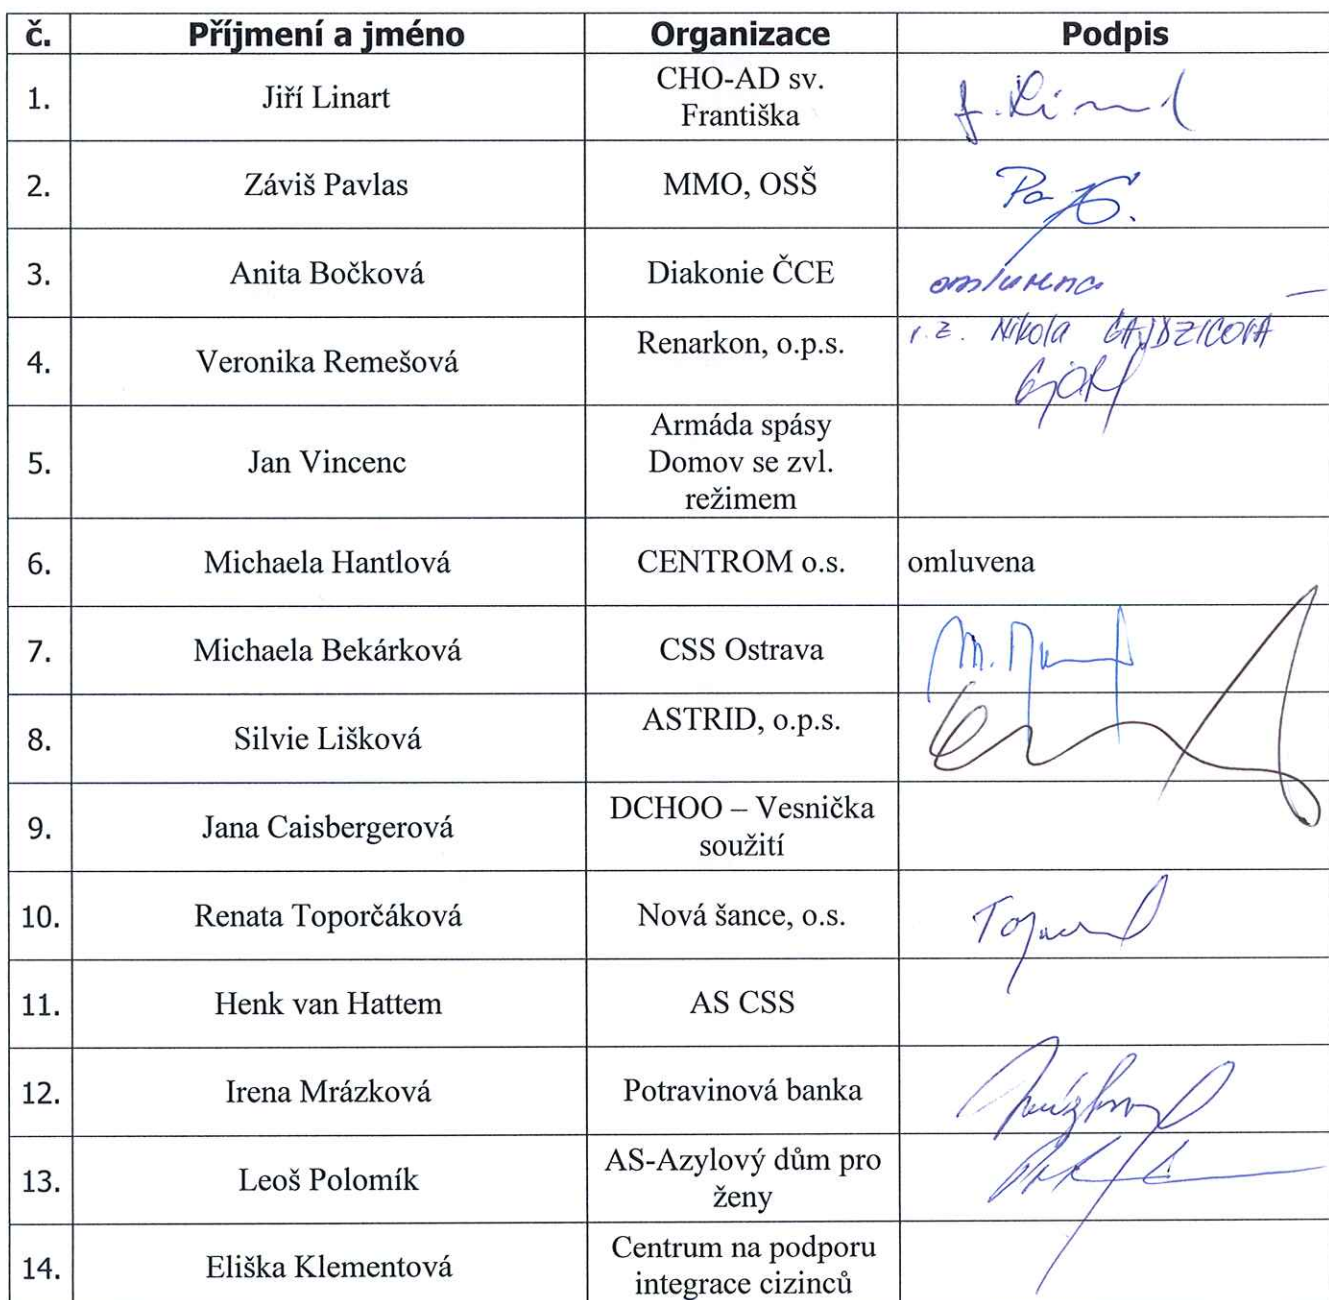 č. Příjmení a jméno Organizace Podpis
1. Jiří Linart CHO-AD sv.
Františka
2. Záviš Pavlas MMO, OSŠ
3. Anita Bočková Diakonie ČCE omluvena
4. Veronika Remešová Renarkon, o.p.s. v.z. Nikola GAJDZICOVÁ
5. Jan Vincenc Armáda spásy
Domov se zvl.
režimem
6. Michaela Hantlová CENTROM o.s. omluvena
7. Michaela Bekárková CSS Ostrava
8. Silvie Lišková ASTRID, o.p.s.
9. Jana Caisbergerová DCHOO – Vesnička
soužití
10. Renata Toporčáková Nová šance, o.s.
11. Henk van Hattem AS CSS
12. Irena Mrázková Potravinová banka
13. Leoš Polomík AS-Azylový dům pro
ženy
14. Eliška Klementová Centrum na podporu
integrace cizinců